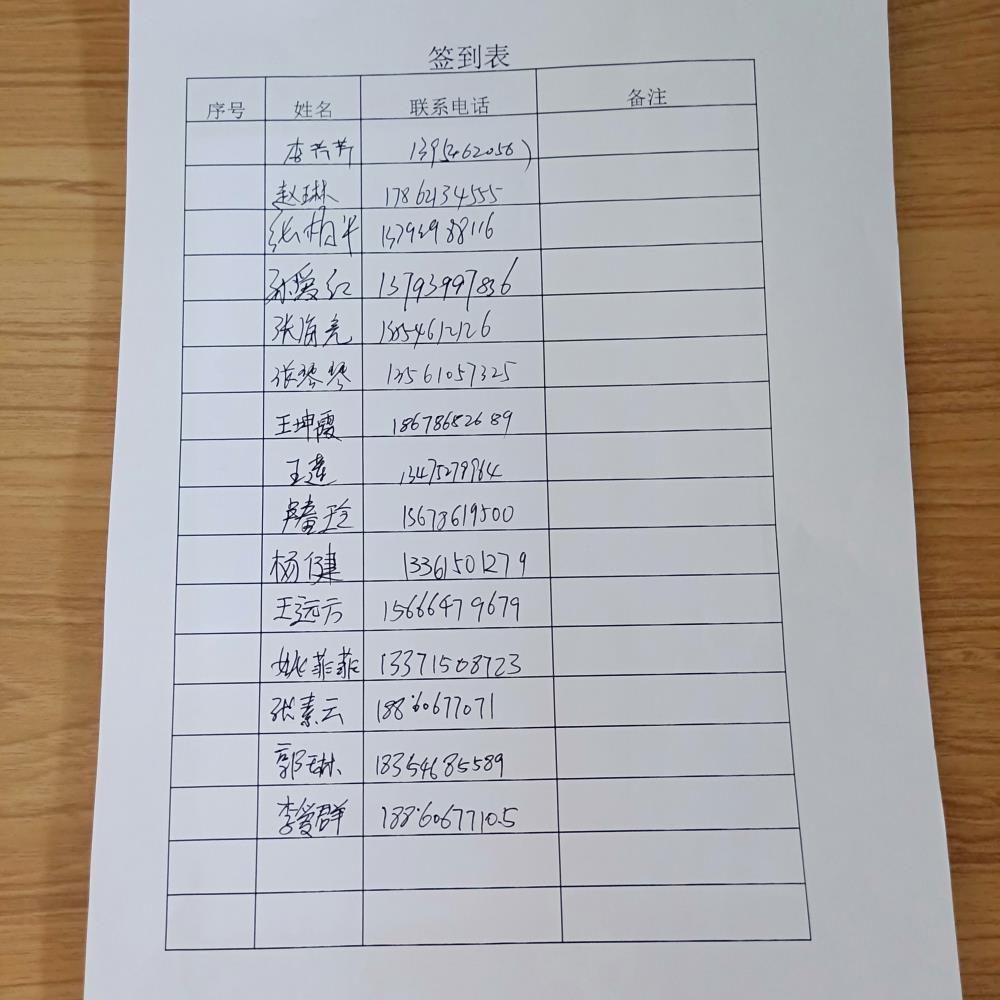 签到表
序号 姓名 联系电话 备注
李芳芳
赵琳琳 17862134555
张柏华
孙爱红 13793997836
张海亮
张琴琴 13561057325
王坤霞 18678682689
王莲 13475279964
15678619500
杨健 13361501279
王远方 15666479679
姚菲菲 13371508723
张素云 18860677071
郭琳 18354685589
李爱群 18860677105